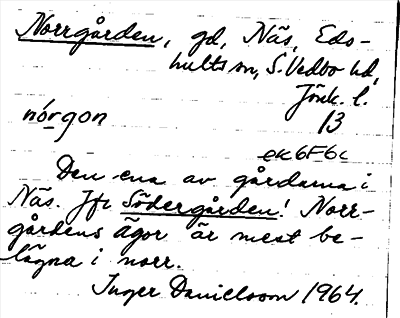 Norrgården, gd, Näs, Eds-
hults sn, S. Vedbo hd,
Jönk. l.
nórgon
13
ek6F6c
Den ena av gårdarna i
Näs. Jfr Södergården! Norr-
gårdens ägor är mest be-
lägna i norr.
Inger Danielsson 1964.